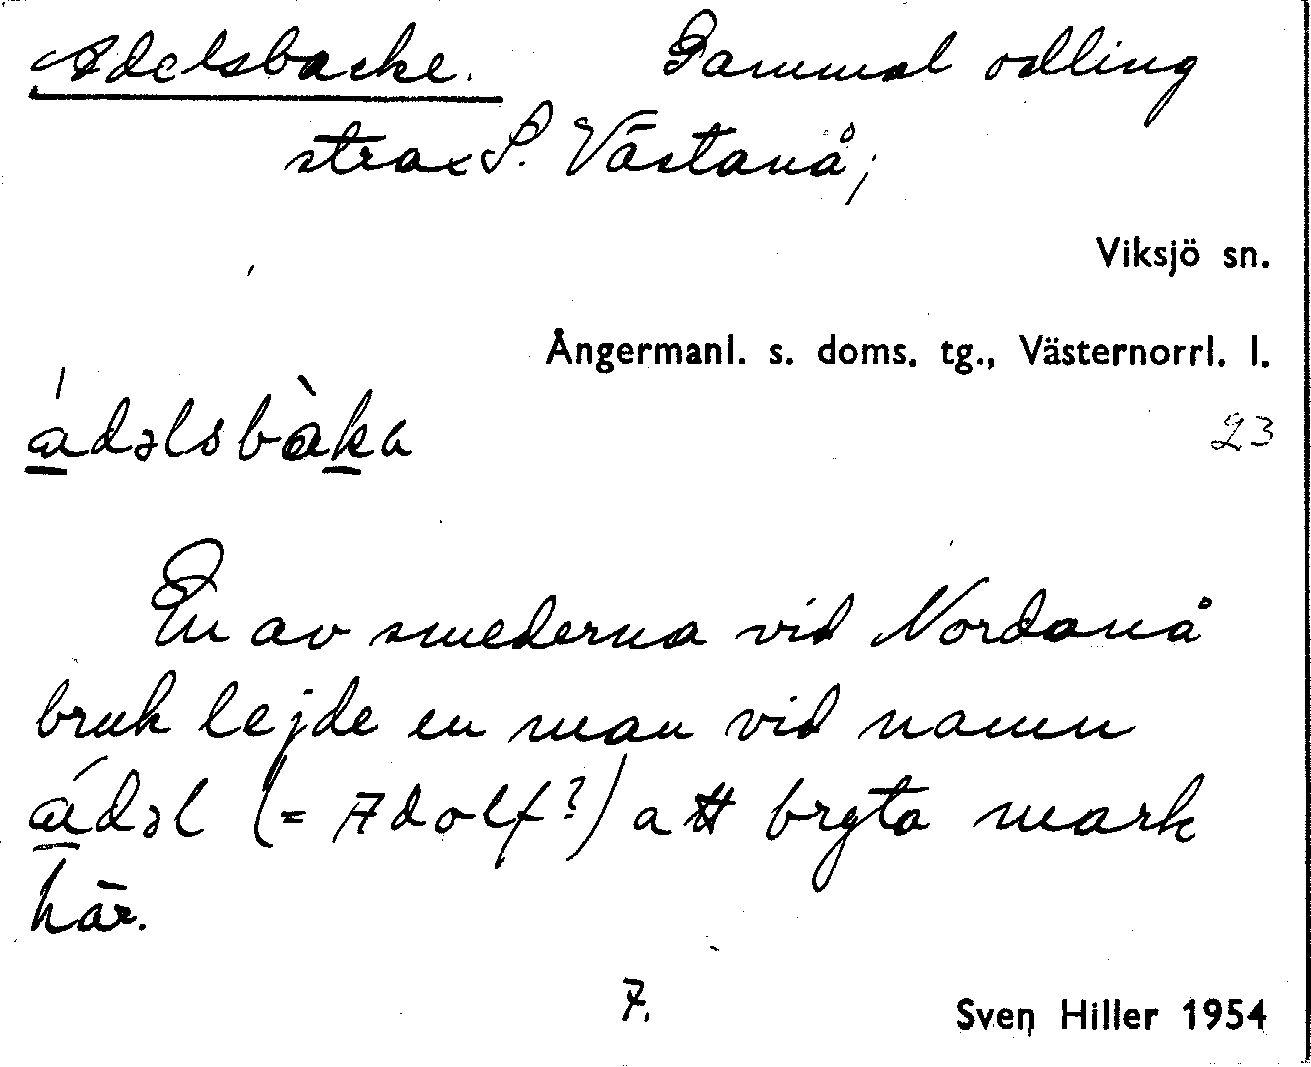 Adelsbacke. Gammal odling
strax S. Västanå;
Viksjö sn.
Ångermanl. s. doms. tg., Västernorrl. l.
ádəlsbàka
23
En av smederna vid Nordanå
bruk lejde en man vid namn
ádəl (= Adolf?) att bryta mark
här.
7.
Sven Hiller 1954